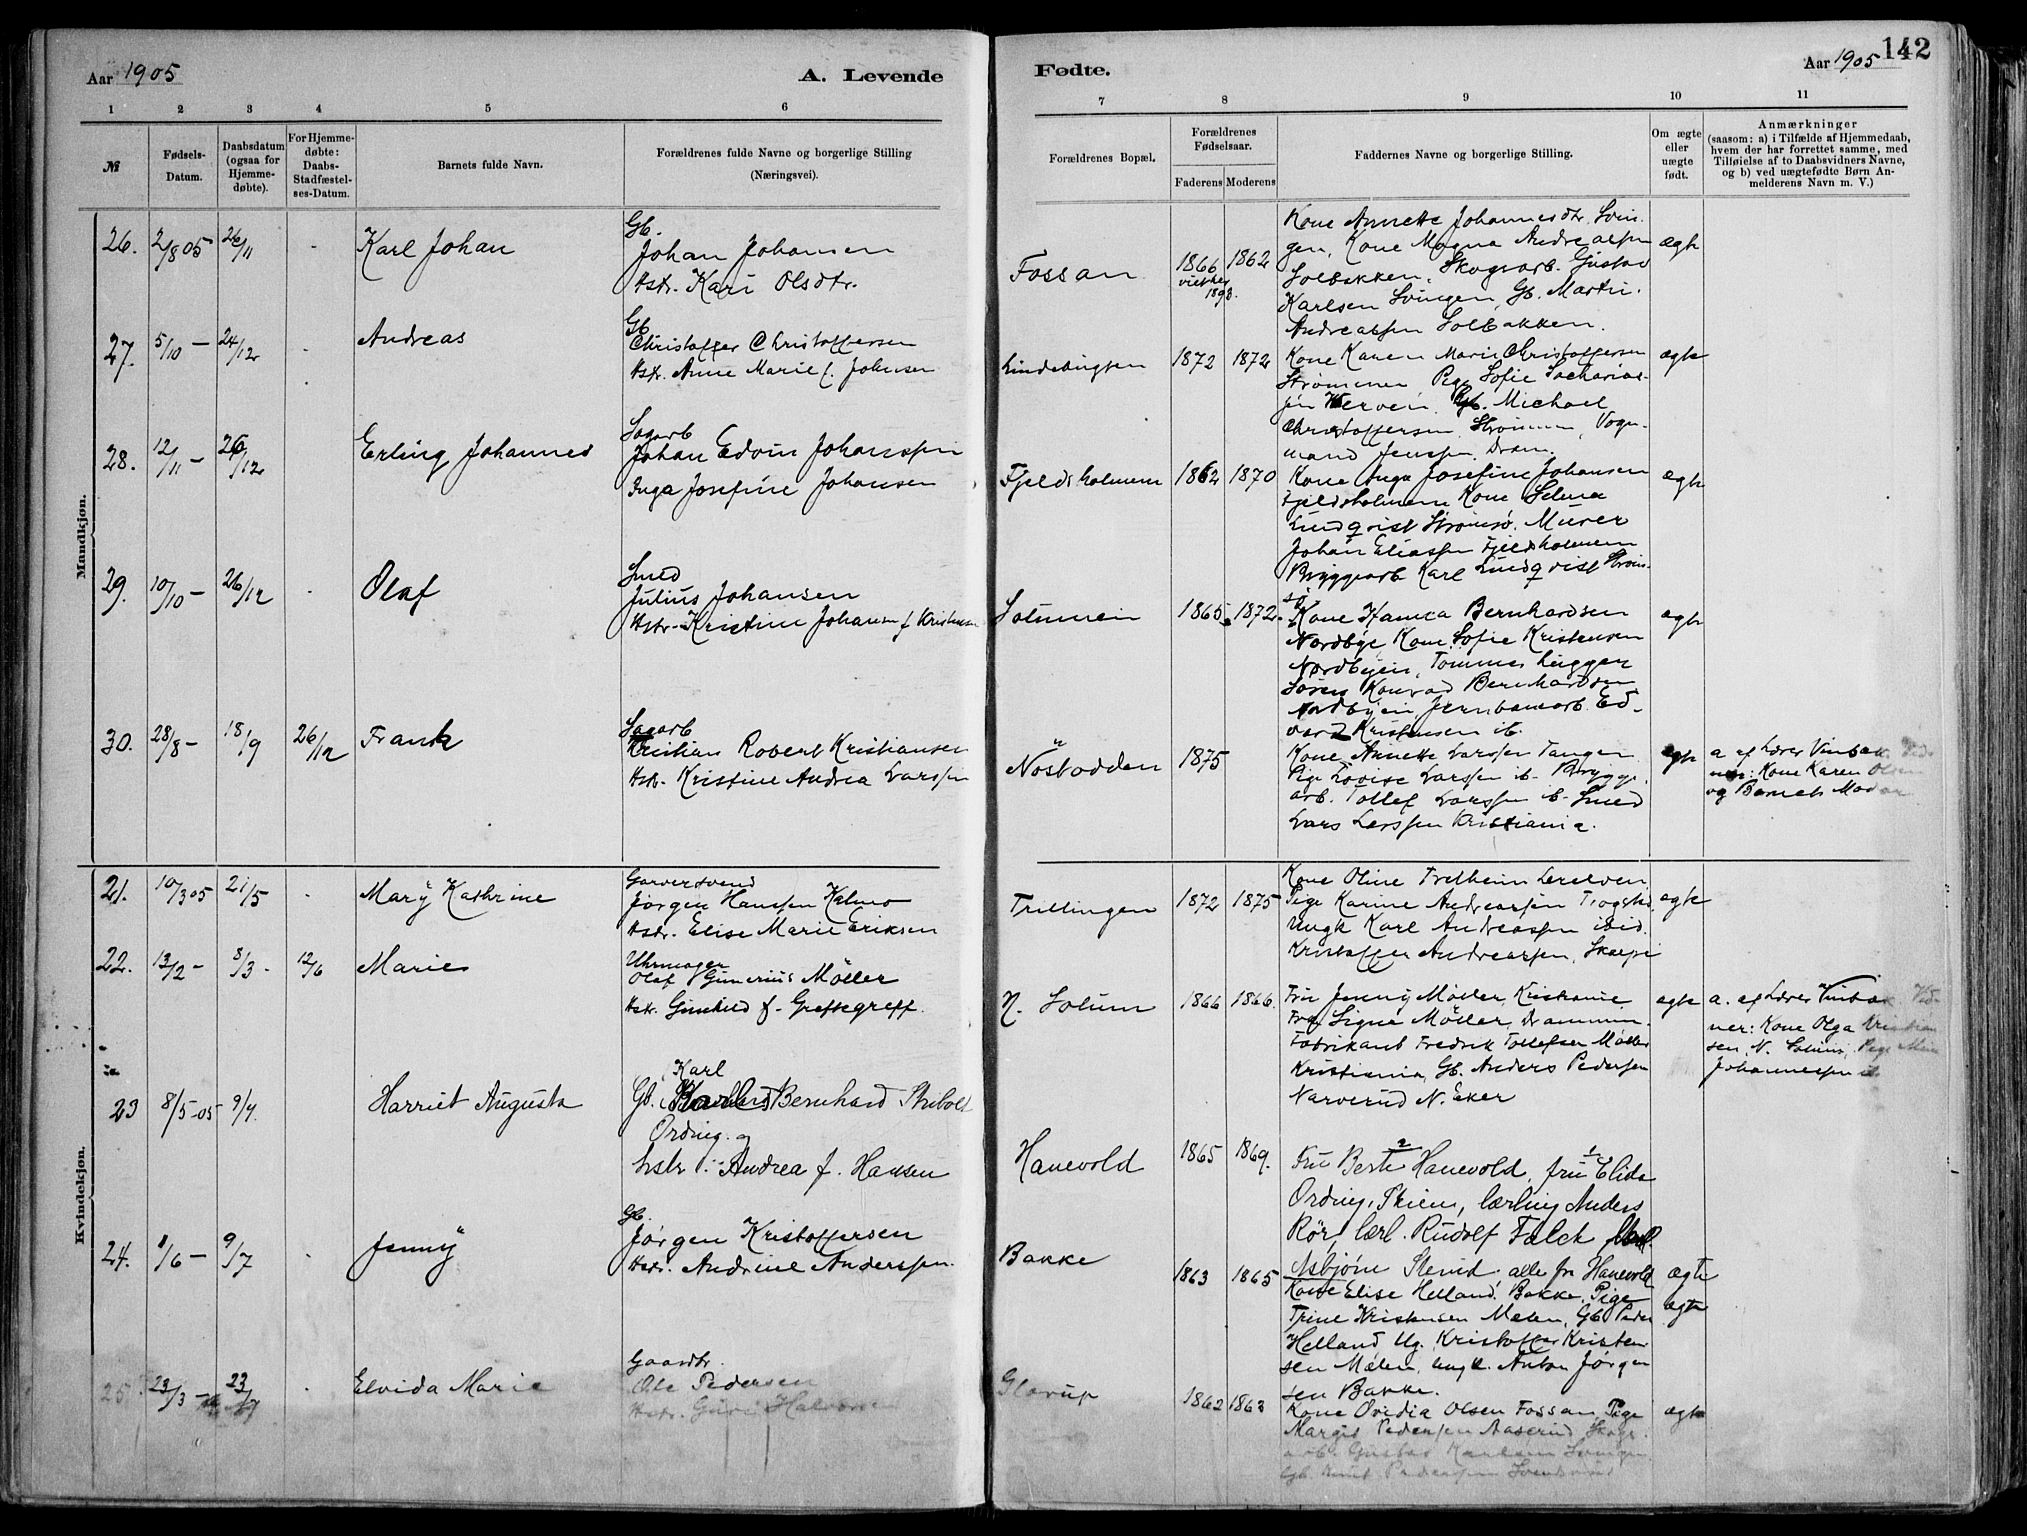 Aar 1905
A. Levende
Fødte.
Aar 1905
142
1 2 3 4 5 6 7 8 9 10 11
№
Fødsels-
Datum.
Daabsdatum
(ogsaa for
Hjemme-
døbte).
For Hjemme-
døbte:
Daabs-
Stadfæstel-
ses-Datum.
Barnets fulde Navn.
Forældrenes fulde Navne og borgerlige Stilling
(Næringsvei).
Forældrenes Bopæl.
Forældrenes
Fødselsaar.
Faderens Moderens
Faddernes Navne og borgerlige Stilling.
Om ægte
eller
uægte
født.
Anmærkninger
(saasom: a) i Tilfælde af Hjemmedaab,
hvem der har forrettet samme, med
Tilføielse af to Daabsvidners Navne,
og b) ved uægtefødte Børn An-
melderens Navn m. V.)
Mandkjøn.
26. 2/8 05 26/11 - Karl Johan
Gb.
Johan Johansen
Hstr. Kari Olsdtr.
Fossan
1866 1862
viet her
1893.
Kone Annette Johannesdtr. Svin
gen, Kone Magna Andreassen
Solbakken, Skogsarb. Gustav
Karlsen Svingen, Gb. Martin
Andreassen Solbakken.
ægte
27. 5/10 - 24/12 - Andreas
Gb.
Christoffer Christoffersen
Hstr. Anne Marie f. Johnsen
1872 1872
Kone Karen Marie Christoffersen
Strømmen Pige Sofie Sacharias-
sen Gb. Michael
Christoffersen Strømmen, Vogn-
mand Jenssen, Dram.
ægte
28. 12/11 - 26/12 Erling Johannes
Sagarb
Johan Edvin Johanssen
Inga Josefine Johansen
Fjeldsholmem 1862 1870
Kone Inga Josefine Johansen
Fjeldsholmem Kone Selma
Lundqvist Strømsø. Murer
Johan Eliassen Fjeldsholmem
Bryggearb Karl Lundqvist Strøm-
sø.
ægte
29. 10/10 - 26/12 - Olaf
Smed
Julius Johansen
Hstr. Kristine Johansen f. Kristensen
1865 1872.
Kone Hanna Bernhardsen
Nordbye, Kone Sofie Kristensen
Nordbyein, Tommerhugger
Søren Konrad Bernhardsen
Nordbyein, Jernbanearb. Ed-
vard Kristensen ib.
ægte
30. 28/8 - 18/9 26/12 Frank
Sagarb
Kristian Robert Kristiansen
Hstr. Kristine Andrea Larssen
Nøstodden 1875
Kone Annette Larssen Tangen
Pige Lovise Larssen ib. Brygge
arb. Tollef Larssen ib. Smed
Lars Larssen Kristiania.
ægte
a. af Lærer Vinbæk. Vid-
ner: Kone Karen Olsen
og Barnets Moder
Kvindekjøn.
21. 10/3 05 21/5 - Mary Kathrine
Garversvend
Jørgen Hanssen Kalmo
Hstr. Elise Marie Eriksen
Trillingen 1872 1875
Kone Oline Tretheim
Pige Karine Andreassen Trogstad
Ungk Karl Andreassen ibid.
Kristoffer Andreassen,
ægte
22. 13/2 - 8/3 - 12/6 Marie
Uhrmager
Olaf Gunerius Möller
Hstr. Gunhild f. Greftegreff.
N. Solum 1866 1866.
Fru Jenny Møller, Kristiania
Frø Signe Möller, Drammen.
Fabrikant Fredrik Tollefsen Møller
Kristiania, Gb. Anders Pedersen
Narverud N. Eker
ægte
a. af Lærer Vinbæk Vid-
ner: Kone Olga Kristian
sen, N. Solum, Pige
Johannessen ib
23 8/5-05 9/7. Harriet Augusta
Karl
Gb. Bernhard Stibolt
Ording. og
hstr. Andrea f. Hansen
Hanevold 1865 1869.
Fru Berte Hanevold, fru Elida
Ording, Skien, lærling Anders
Rör, lærl. Rudolf Falck
Asbjørn alle fr. Hanevold
ægte
24. 1/6 - 9/7 - Jenny
Gb.
Jørgen Kristoffersen
Hstr. Andrine Anderssen.
Bakke 1863 1865
Kone Elise Helland, Bakke, Pige
Trine Kristensen Mælen, Gb Peder
Helland Ug. Kristoffer Kristen
sen Mælen, ungk. Anton Jørgen
sen Bakke.
ægte
25 23/3 - 23/7 - Elvida Marie
Gaardbr.
Ole Pedersen
Hstr. Guri Halvorsen
Glorup 1862 1863
Kone Ovidia Olsen Fossan, Pige
Margit Pedersen Aaserud Skogs
arb. Gustav Karlsen Svingen
Gb. Knut Pedersen
ægte